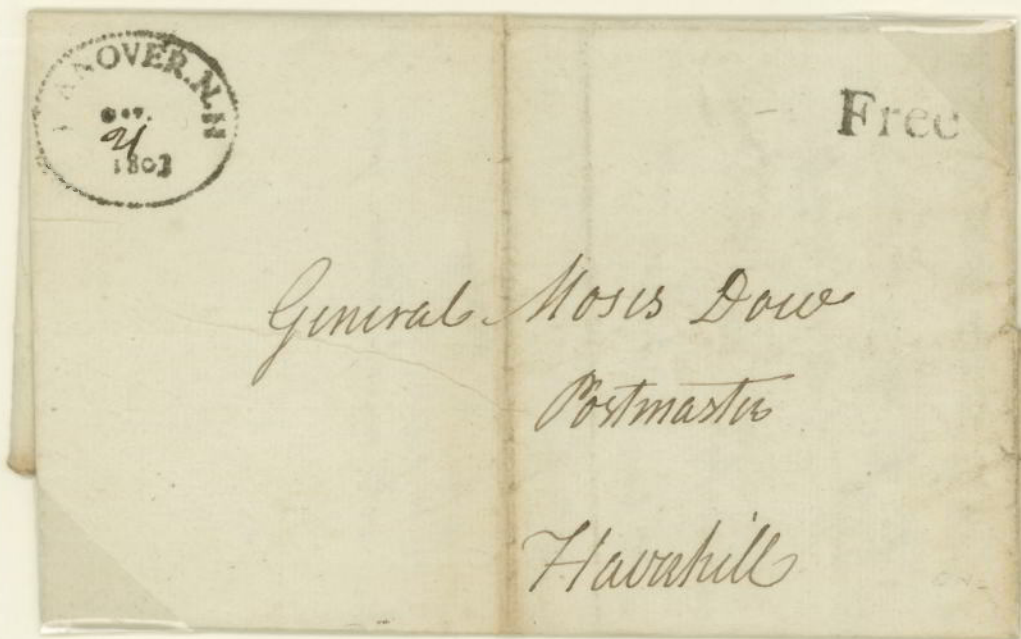 HANOVER.N.H
OCT.
21
1803
Free
General Moses Dow
Postmaster
Haverhill